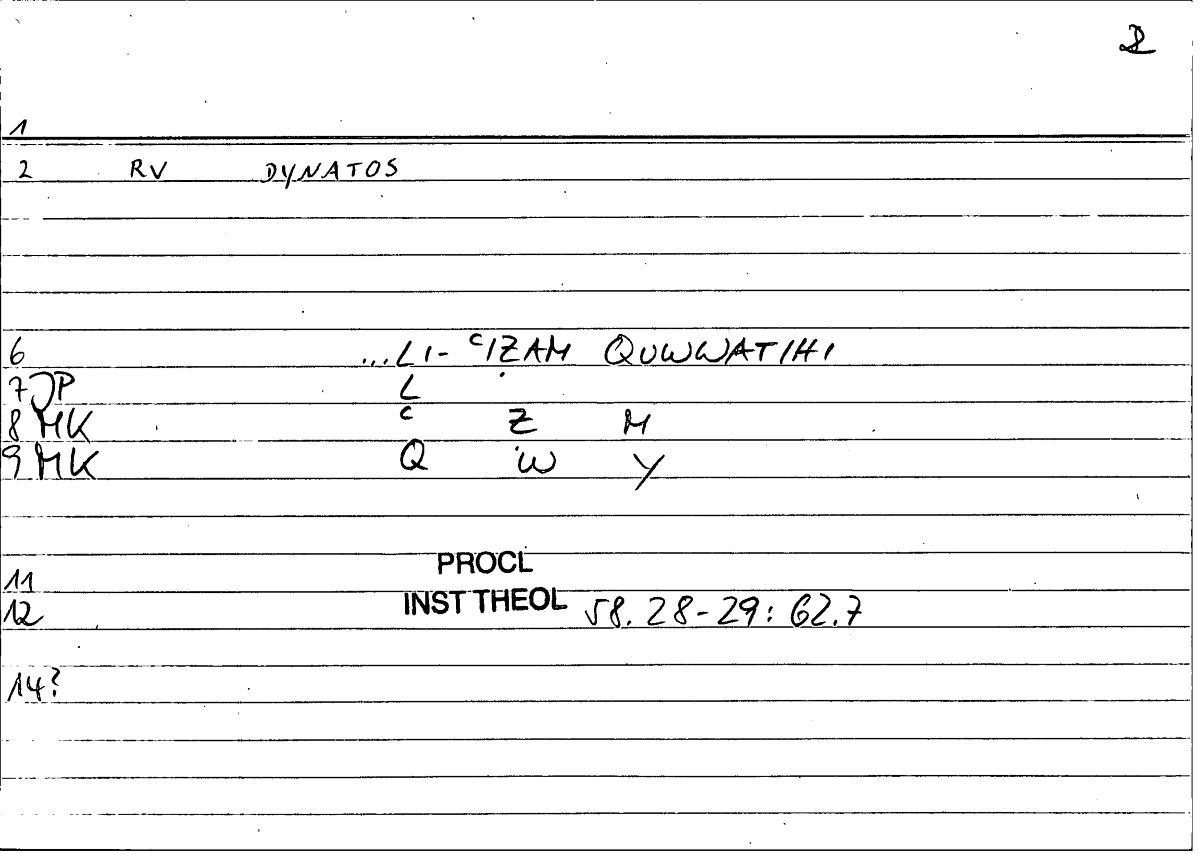 1
2 RV DYNATOS
6 ...LI- ᶜIẒAM QUWWATIHI
7 JP L
8 MK ᶜ Ẓ M
9 MK Q W Y
11 PROCL
12 INST THEOL 58.28-29: 62.7
14?